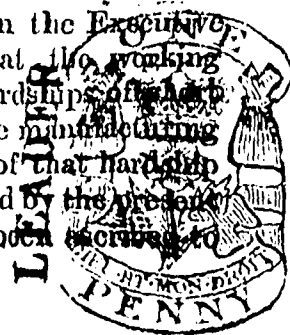 n the Executive
at the working
rdships of
e manufacturing
of that hardship
d by the present
been ascribed to
LEADER
ONE
ET MON DROIT
PENNY